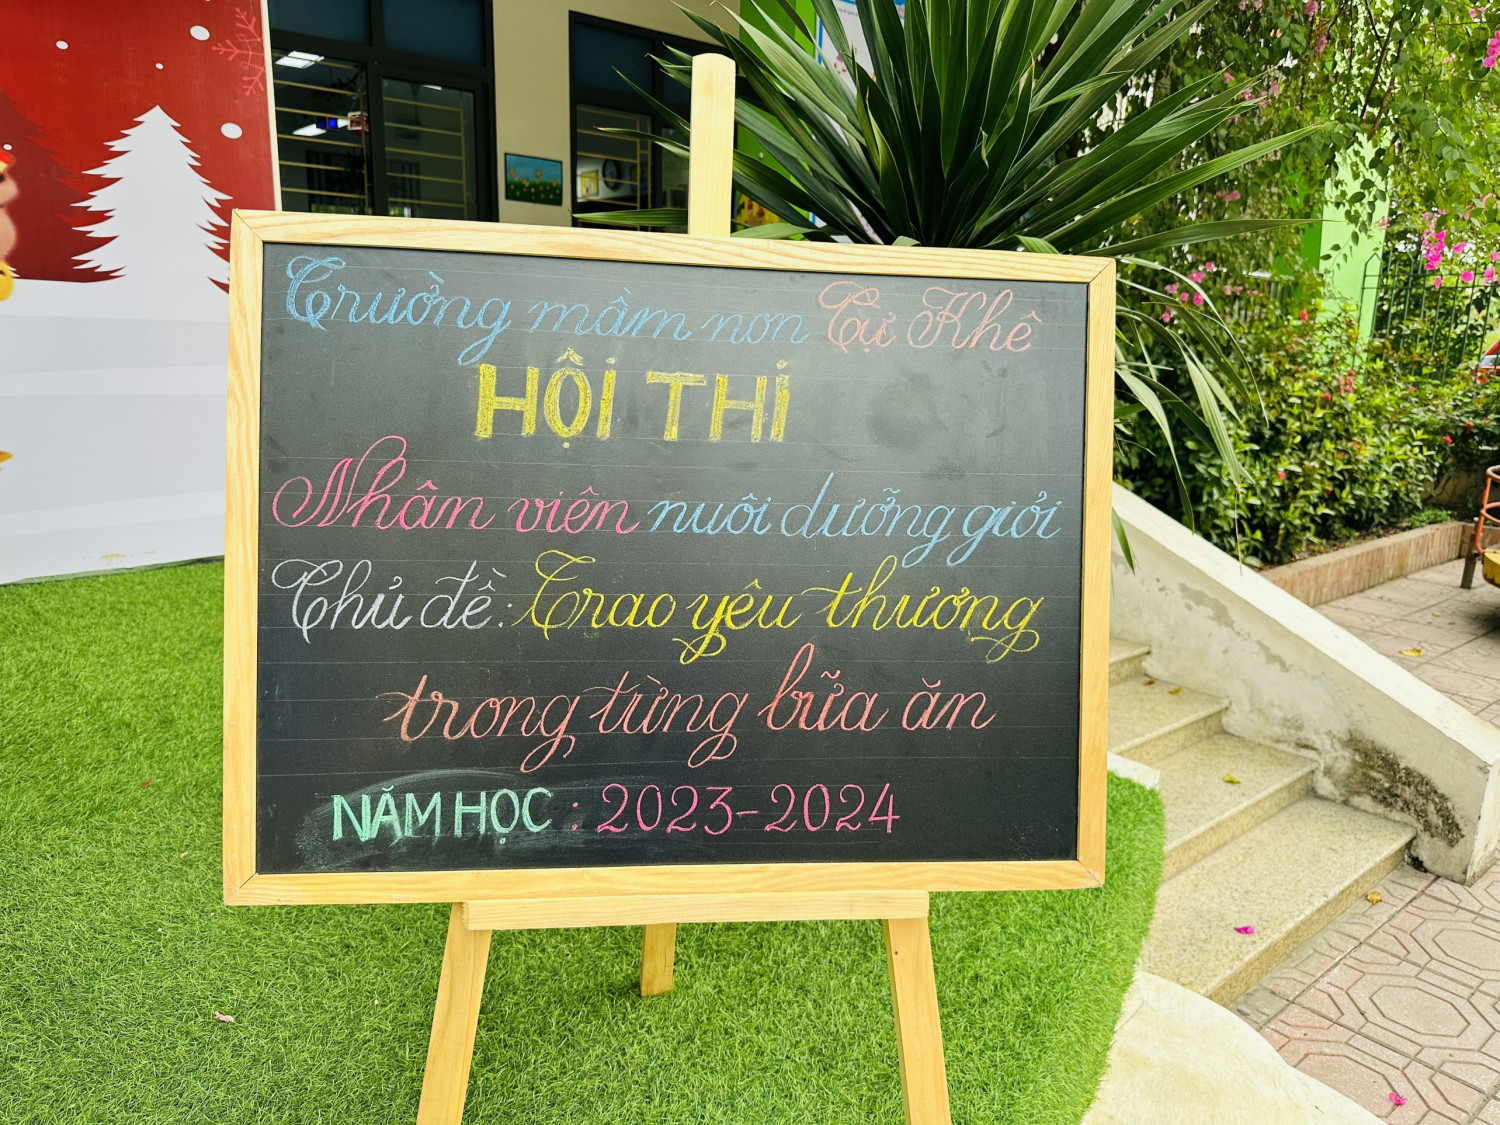 Trường mầm non Cự Khê
HỘI THI
Nhân viên nuôi dưỡng giỏi
Chủ đề: Trao yêu thương
trong từng bữa ăn
NĂM HỌC : 2023-2024